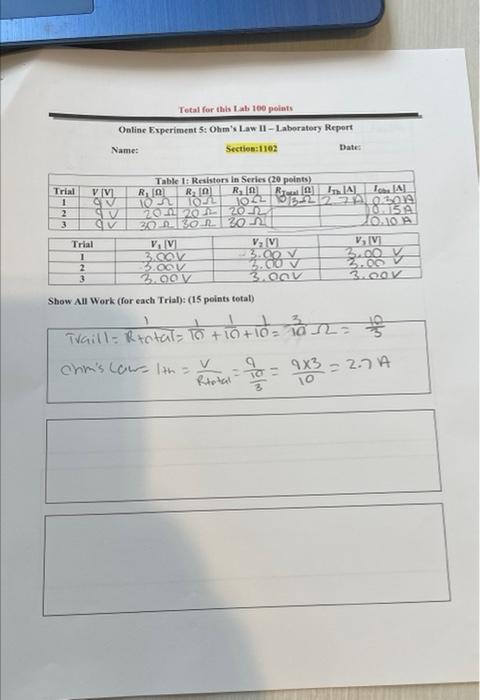 Total for this Lab 100 points
Online Experiment 5: Ohm's Law II – Laboratory Report
Name: Section:1102 Date:
Table 1: Resistors in Series (20 points)
Trial V [V] R1 [Ω] R2 [Ω] R3 [Ω] RTotal [Ω] ITh [A] IObs [A]
1 9V 10Ω 10Ω 10Ω 10/3Ω 2.7A 0.30A
2 9V 20Ω 20Ω 20Ω 0.15A
3 9V 30Ω 30Ω 30Ω 0.10A
Trial V1 [V] V2 [V] V3 [V]
1 3.00V 3.00 V 3.00 V
2 3.00V 3.00 V 3.00 V
3 3.00V 3.00V 3.00V
Show All Work (for each Trial): (15 points total)
Traill = 1/Rtotal = 1/10 + 1/10 + 1/10 = 3/10 Ω = 10/3
Ohm's Law = Ith = V/Rtotal = 9/(10/3) = 9x3/10 = 2.7 A